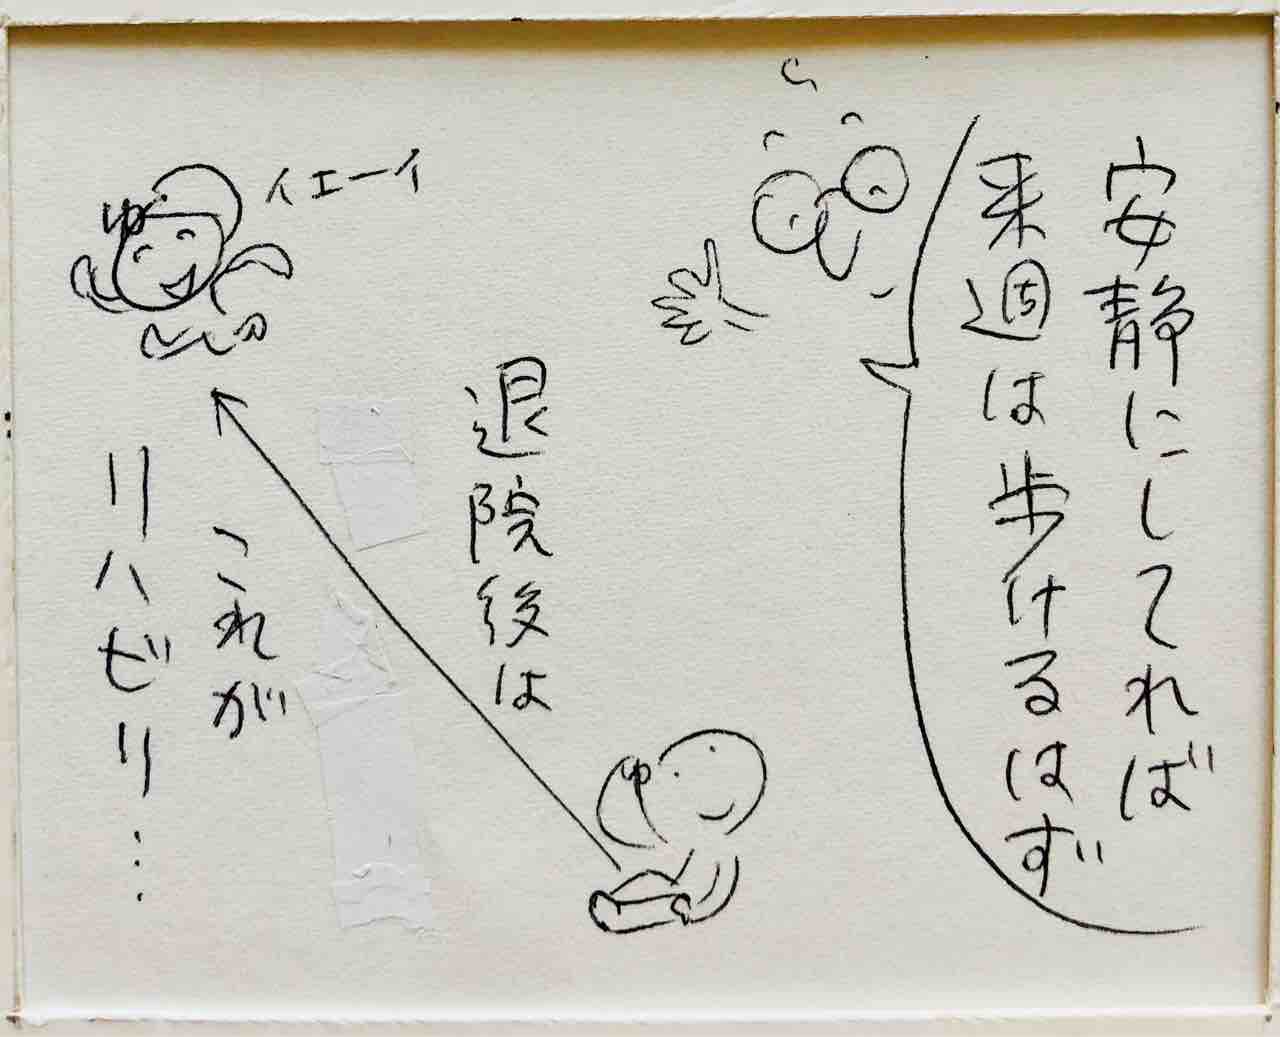 安静にしてれば
来週は歩けるはず
退院後は
イエーイ
ゆ
ゆ
これが
リハビリ…